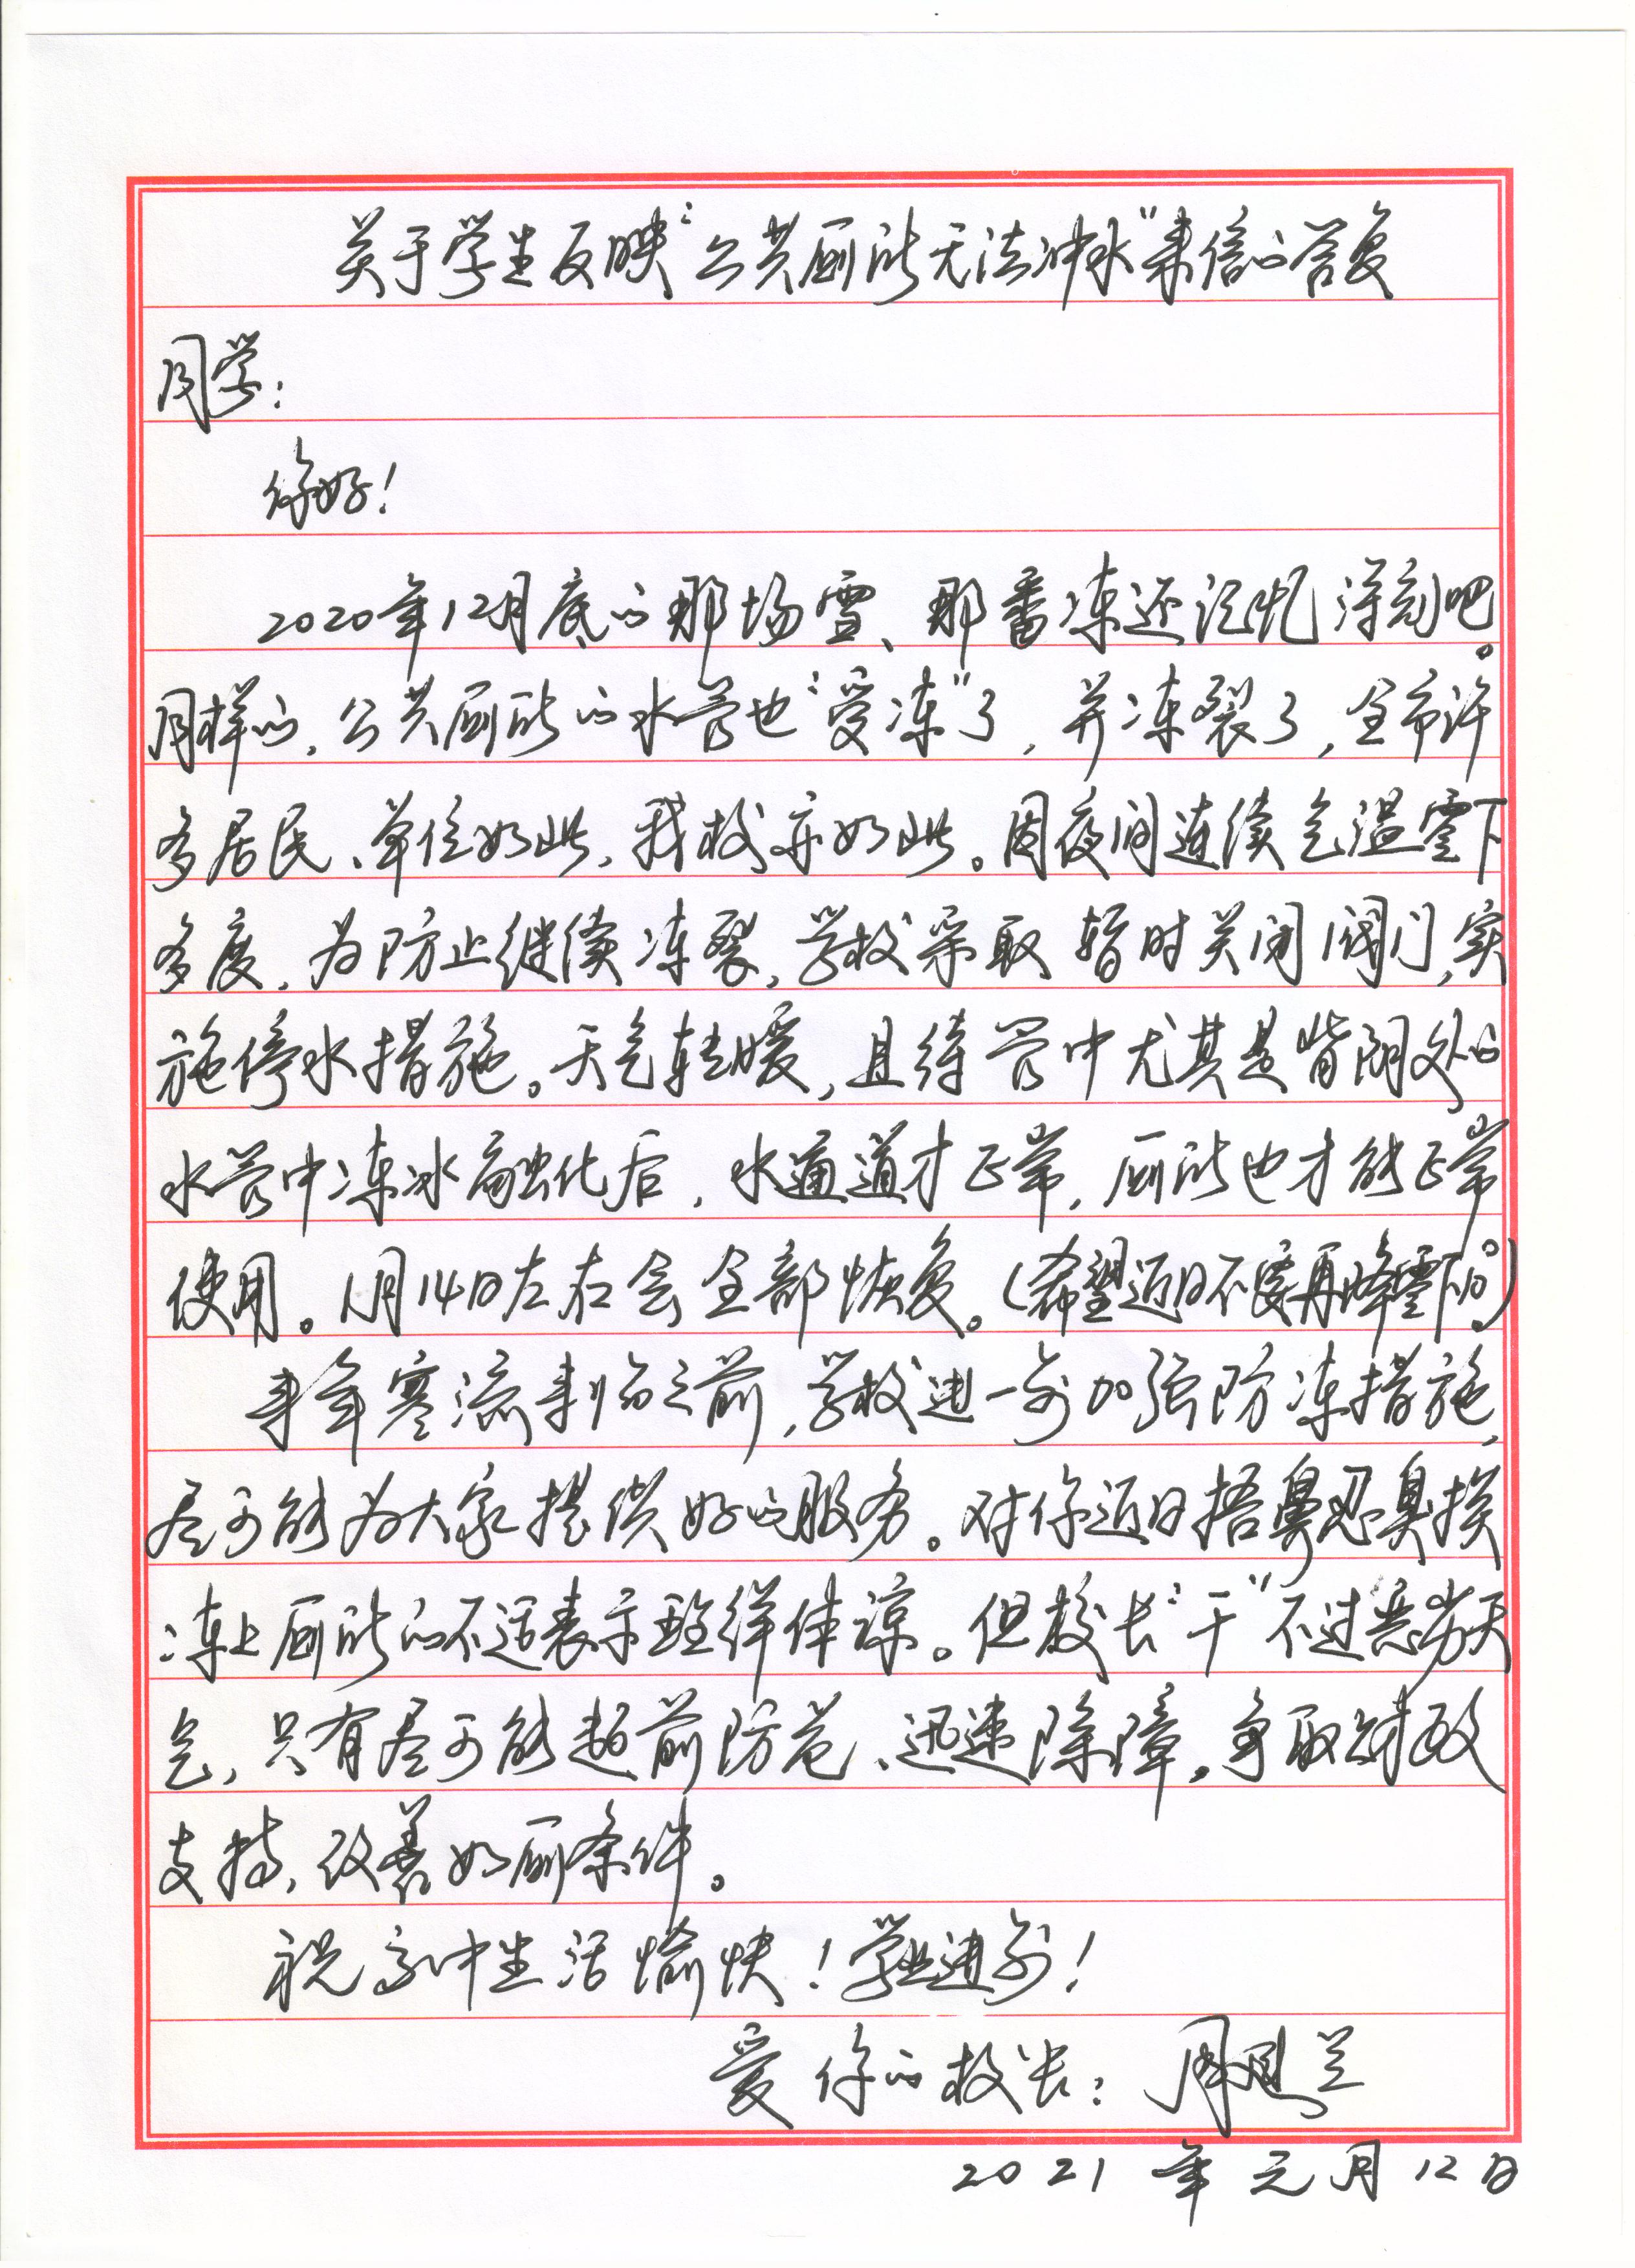 关于学生反映“公共厕所无法冲水”来信的答复
同学：
你好！
2020年12月底的那场雪、那番冻还记忆深刻吧。
同样的，公共厕所的水管也“受冻”了，并冻裂了，全市许
多居民、单位如此，我校亦如此。因夜间连续气温零下
多度，为防止继续冻裂，学校采取暂时关闭阀门，实
施停水措施。天气转暖，且待管中尤其是背阴处的
水管中冻冰融化后，水通道才正常，厕所也才能正常
使用。1月14日左右会全部恢复。（希望近日不要再降零下10°。）
来年寒流来临之前，学校进一步加强防冻措施，
尽可能为大家提供好的服务。对你近日捂鼻忍臭挨
冻上厕所的不适表示致歉体谅。但校长“干”不过恶劣天
气，只有尽可能超前防范、迅速除障。争取财政
支持，改善如厕条件。
祝高中生活愉快！学业进步！
爱你的校长：周
2021年元月12日